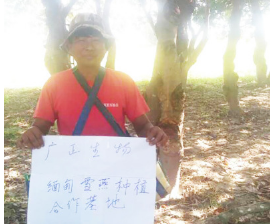 广正生物
缅甸雪燕种植
合作基地